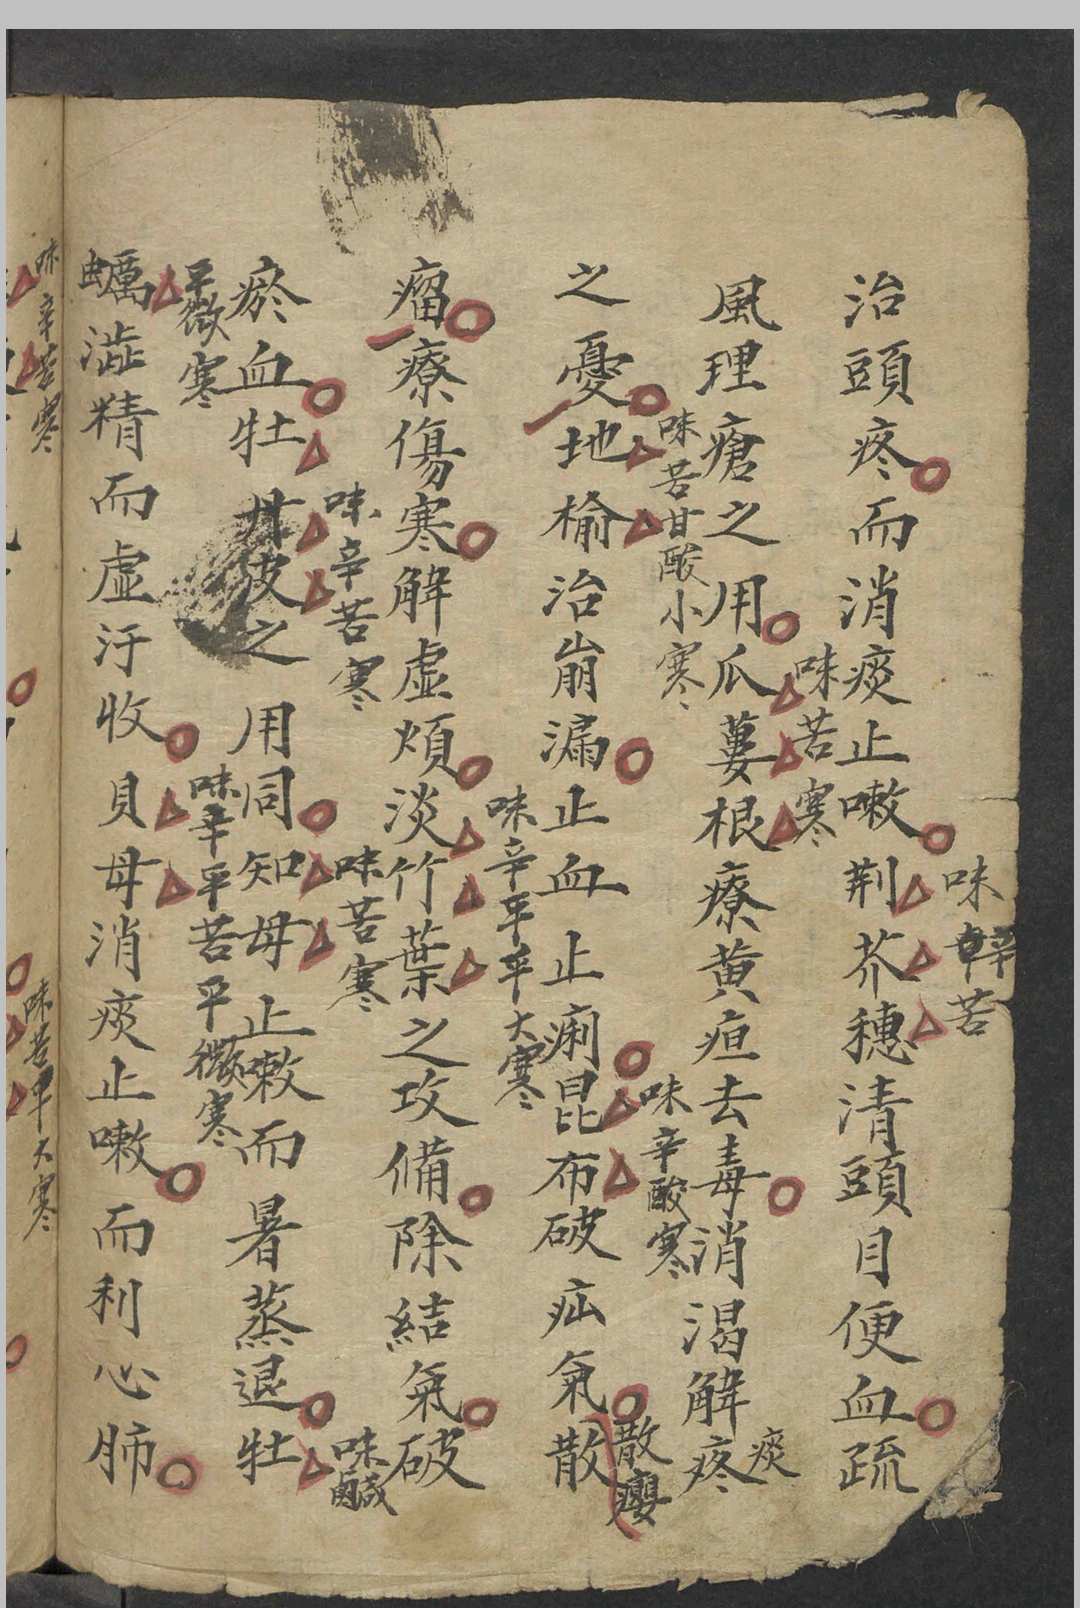 治頭疼而消痰止嗽荆芥穗清頭目便血疏
味辛苦
風理瘡之用瓜蔞根療黄疸去毒消渴解疼
味苦寒
痰
之憂地榆治崩漏止血止痢昆布破疝氣散
味苦甘酸小寒
味辛酸寒
散癭
瘤療傷寒解虛煩淡竹葉之攻備除結氣破
味辛平大寒
瘀血牡丹皮之用同知母止嗽而暑蒸退牡
味辛苦寒
味苦寒
味鹹
平微寒
蠣澁精而虛汗收貝母消痰止嗽而利心肺
味辛平苦平微寒
味辛苦寒
味苦平大寒